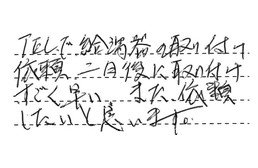 TELして給湯器の取り付け
依頼 二日後に取り付け
すごく早い また依頼
したいと思います。